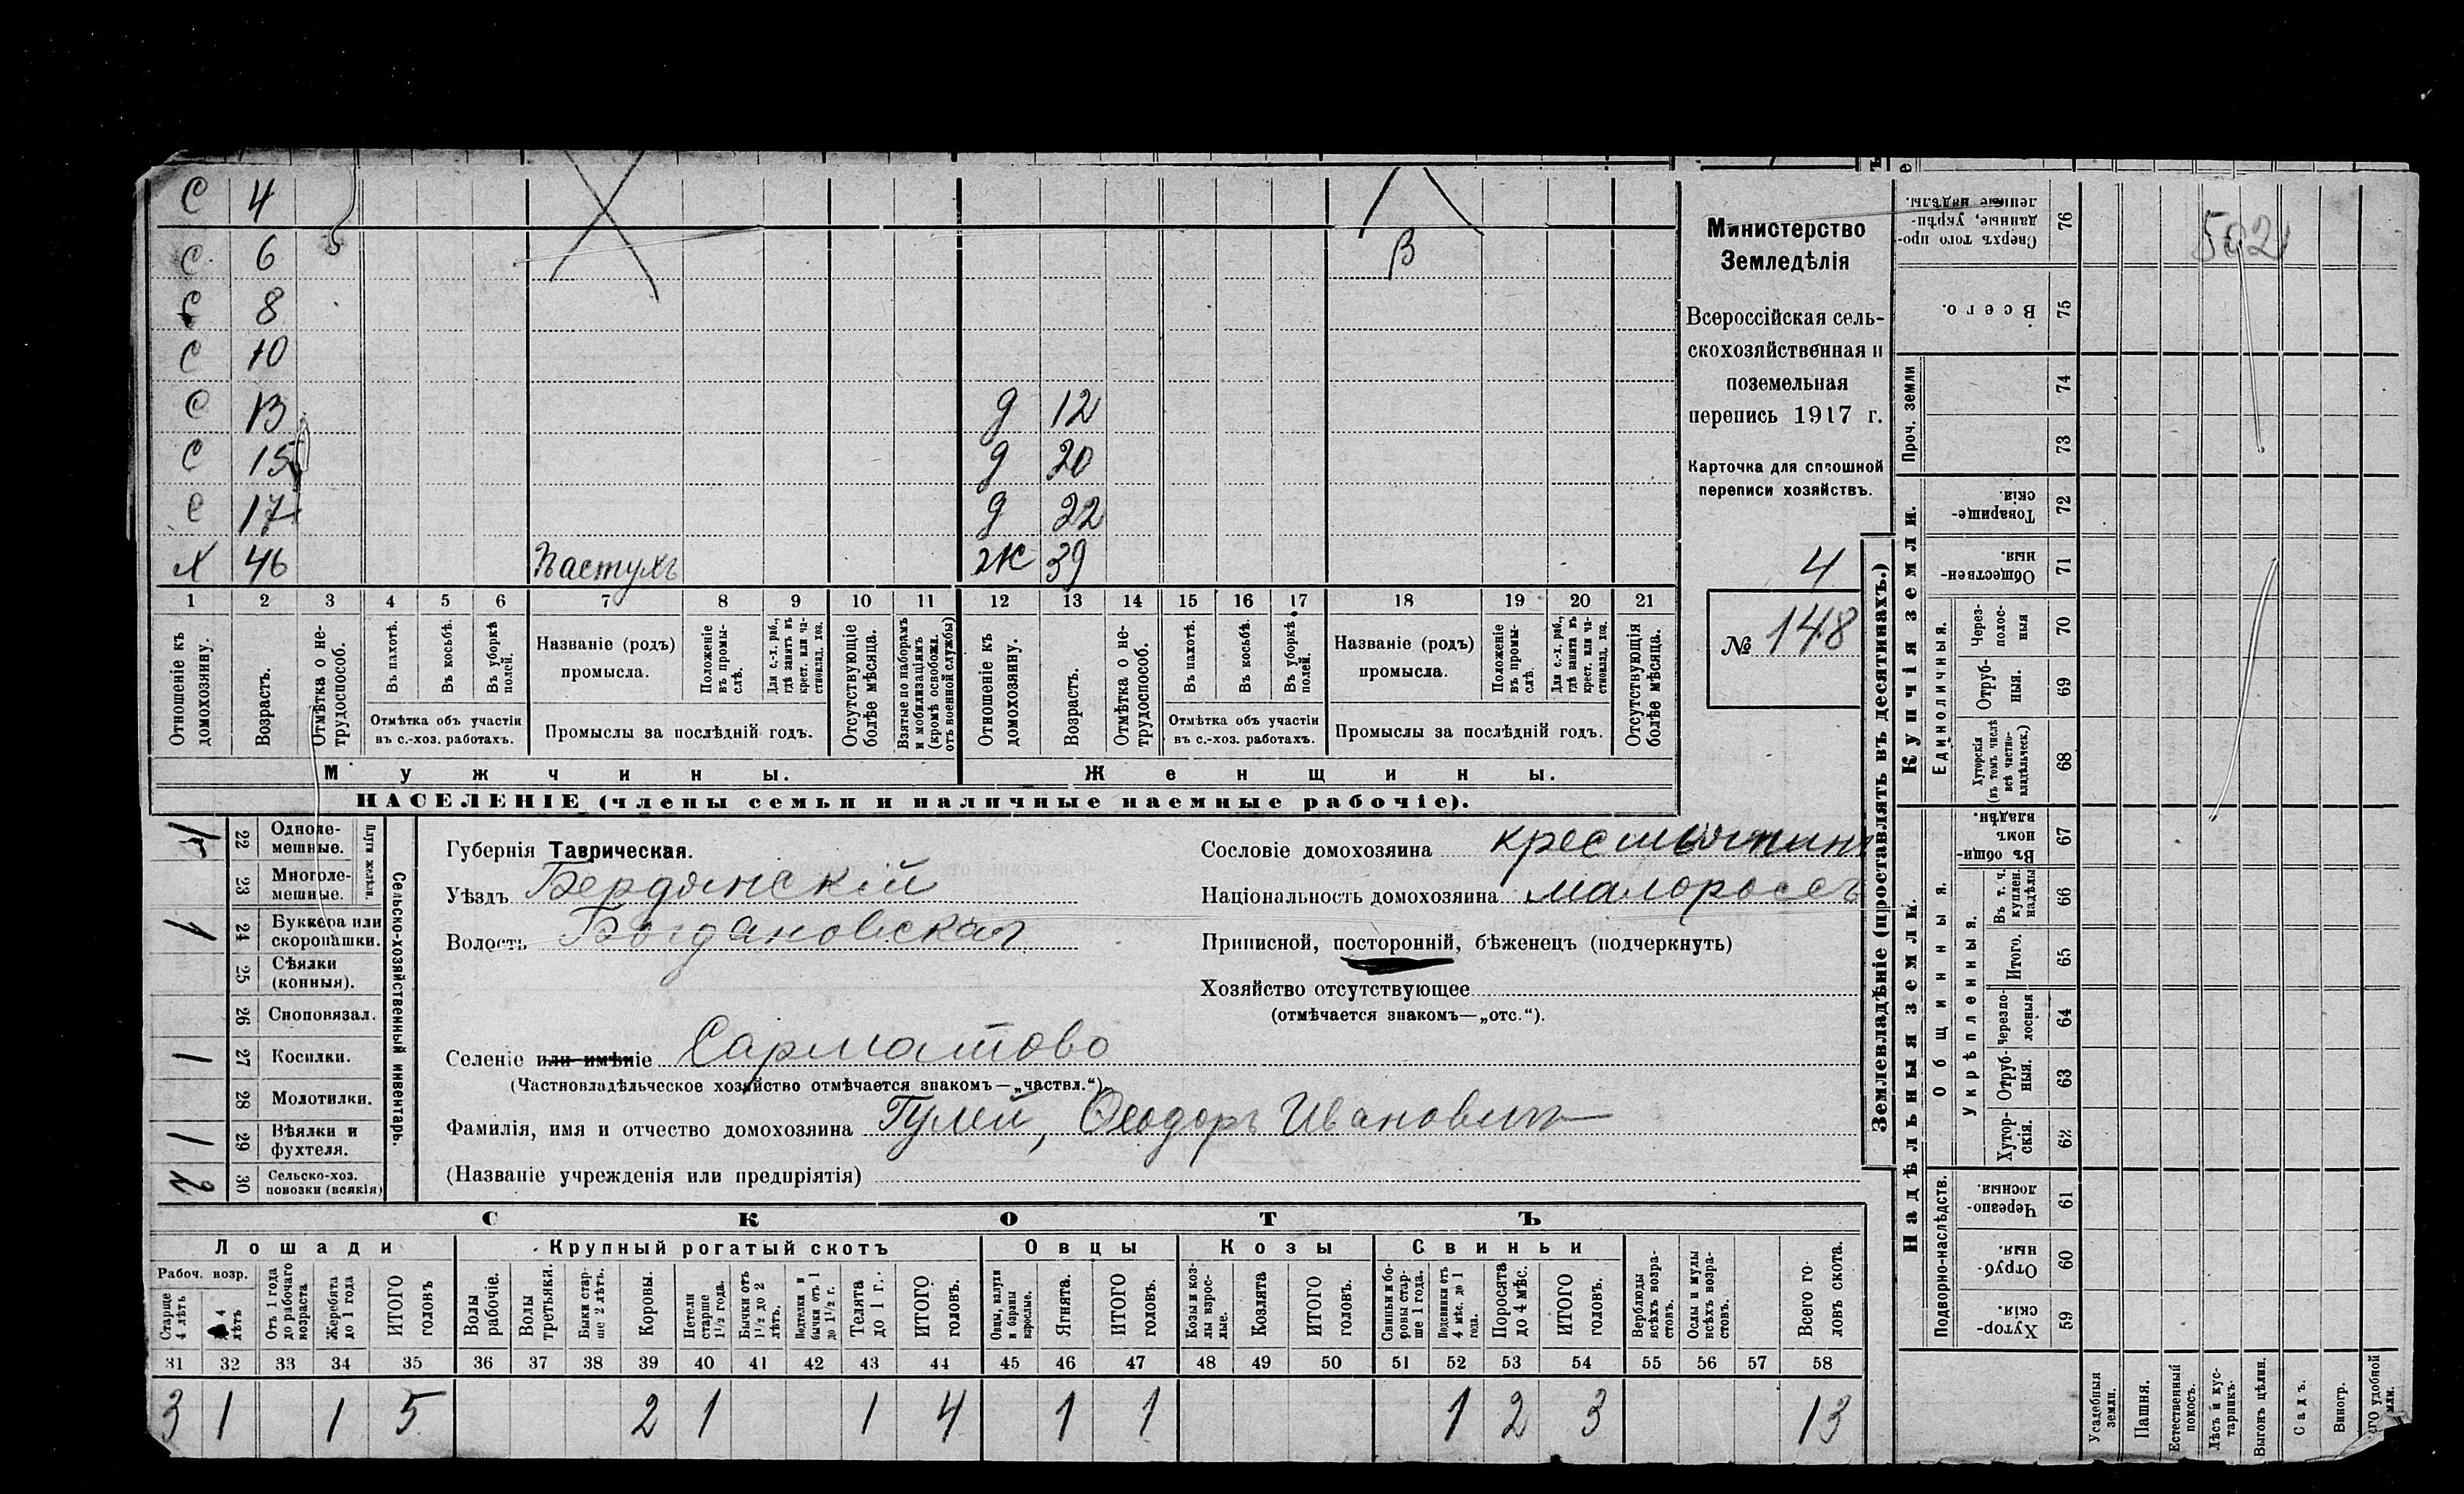 С 4
С 6 В
С 8
С 10
С 13 д 12
С 15 д 20
С 17 д 22
Х 46 Пастухъ ж 39
1 2 3 4 5 6 7 8 9 10 11 12 13 14 15 16 17 18 19 20 21
Отношеніе къ домохозяину.
Возрастъ.
Отмѣтка о нетрудоспособ.
Въ пахотѣ.
Въ косьбѣ.
Въ уборкѣ полей.
Отмѣтка объ участіи
въ с.-хоз. работахъ.
Названіе (родъ)
промысла.
Положеніе въ промыслѣ.
Для с.-х. раб., гдѣ занятъ въ крест. или частновлад. хоз.
Промыслы за послѣдній годъ.
Отсутствующіе болѣе мѣсяца.
Взятые по наборамъ и мобилизаціямъ (кромѣ освобожд. отъ военной службы)
Отношеніе къ домохозяину.
Возрастъ.
Отмѣтка о нетрудоспособ.
Въ пахотѣ.
Въ косьбѣ.
Въ уборкѣ полей.
Отмѣтка объ участіи
въ с.-хоз. работахъ.
Названіе (родъ)
промысла.
Положеніе въ промыслѣ.
Для с.-х. раб., гдѣ занятъ въ крест. или частновлад. хоз.
Промыслы за послѣдній годъ.
Отсутствующія болѣе мѣсяца.
Мужчины.
Женщины.
НАСЕЛЕНІЕ (члены семьи и наличные наемные рабочіе).
Министерство
Земледѣлія
Всероссійская сель-
скохозяйственная и
поземельная
перепись 1917 г.
Карточка для сплошной
переписи хозяйствъ.
4
№ 148
22 Одноле-
мешные.
Плуги желѣзн.
23 Многоле-
мешные.
1 24 Буккера или
скоропашки.
25 Сѣялки
(конныя).
26 Сноповязал.
1 27 Косилки.
28 Молотилки.
1 29 Вѣялки и
фухтеля.
2 30 Сельско-хоз.
повозки (всякія)
Сельско-хозяйственный инвентарь.
Губернія Таврическая.
Уѣздъ Бердянскій
Волость Богдановская
Селеніе или имѣніе Сарматово
(Частновладѣльческое хозяйство отмѣчается знакомъ—„частвл.“)
Фамилія, имя и отчество домохозяина Гулей, Ѳеодоръ Ивановичъ
(Названіе учрежденія или предпріятія)
Сословіе домохозяина крестьянинъ
Національность домохозяина малороссъ
Приписной, посторонній, бѣженецъ (подчеркнуть)
Хозяйство отсутствующее
(отмѣчается знакомъ—„отс.“).
СКОТЪ
Лошади Крупный рогатый скотъ Овцы Козы Свиньи
Рабоч. возр.
Старше 4 лѣтъ
4 лѣтъ
Отъ 1 года до рабочаго возраста
Жеребята до 1 года
ИТОГО головъ
Волы рабочіе.
Волы третьяки.
Быки старше 2 лѣтъ.
Коровы.
Нетели старше 1½ года.
Бычки отъ 1½ до 2 лѣтъ.
Подтелки и бычки отъ 1 до 1½ г.
Телята до 1 г.
ИТОГО головъ.
Овцы, валухи и бараны взрослые.
Ягнята.
ИТОГО головъ.
Козы и козлы взрослые.
Козлята
ИТОГО головъ.
Свиньи и боровы старше 1 года.
Подсвинки отъ 4 мѣс. до 1 года.
Поросята до 4 мѣс.
ИТОГО головъ.
Верблюды всѣхъ возрастовъ.
Ослы и мулы всѣхъ возрастовъ.
Всего головъ скота.
31 32 33 34 35 36 37 38 39 40 41 42 43 44 45 46 47 48 49 50 51 52 53 54 55 56 57 58
3 1 1 5 2 1 1 4 1 1 1 2 3 13
Землевладѣніе (проставлять въ десятинахъ.)
Купчія земли.
Надѣльныя земли.
Проч. земли
Единоличныя.
Общинныя.
Укрѣпленныя.
Подворно-наслѣдств.
Сверхъ того проданные, укрѣпленные надѣлы. 76
502
Всего. 75
74
73
Товарищескія. 72
Общественныя. 71
Черезполосныя 70
Отрубныя. 69
Хуторскія (въ томъ числѣ всѣ частновладѣльческ.) 68
Въ общинномъ владѣн. 67
Въ т. ч. куплен. надѣлы 66
Итого. 65
Черезполосныя 64
Отрубныя. 63
Хуторскія. 62
Черезполосныя. 61
Отрубныя. 60
Хуторскія. 59
Усадебныя земли.
Пашня.
Естественный покосъ.
Лѣсъ и кустарникъ.
Выгонъ цѣлин.
Садъ.
Виногр.